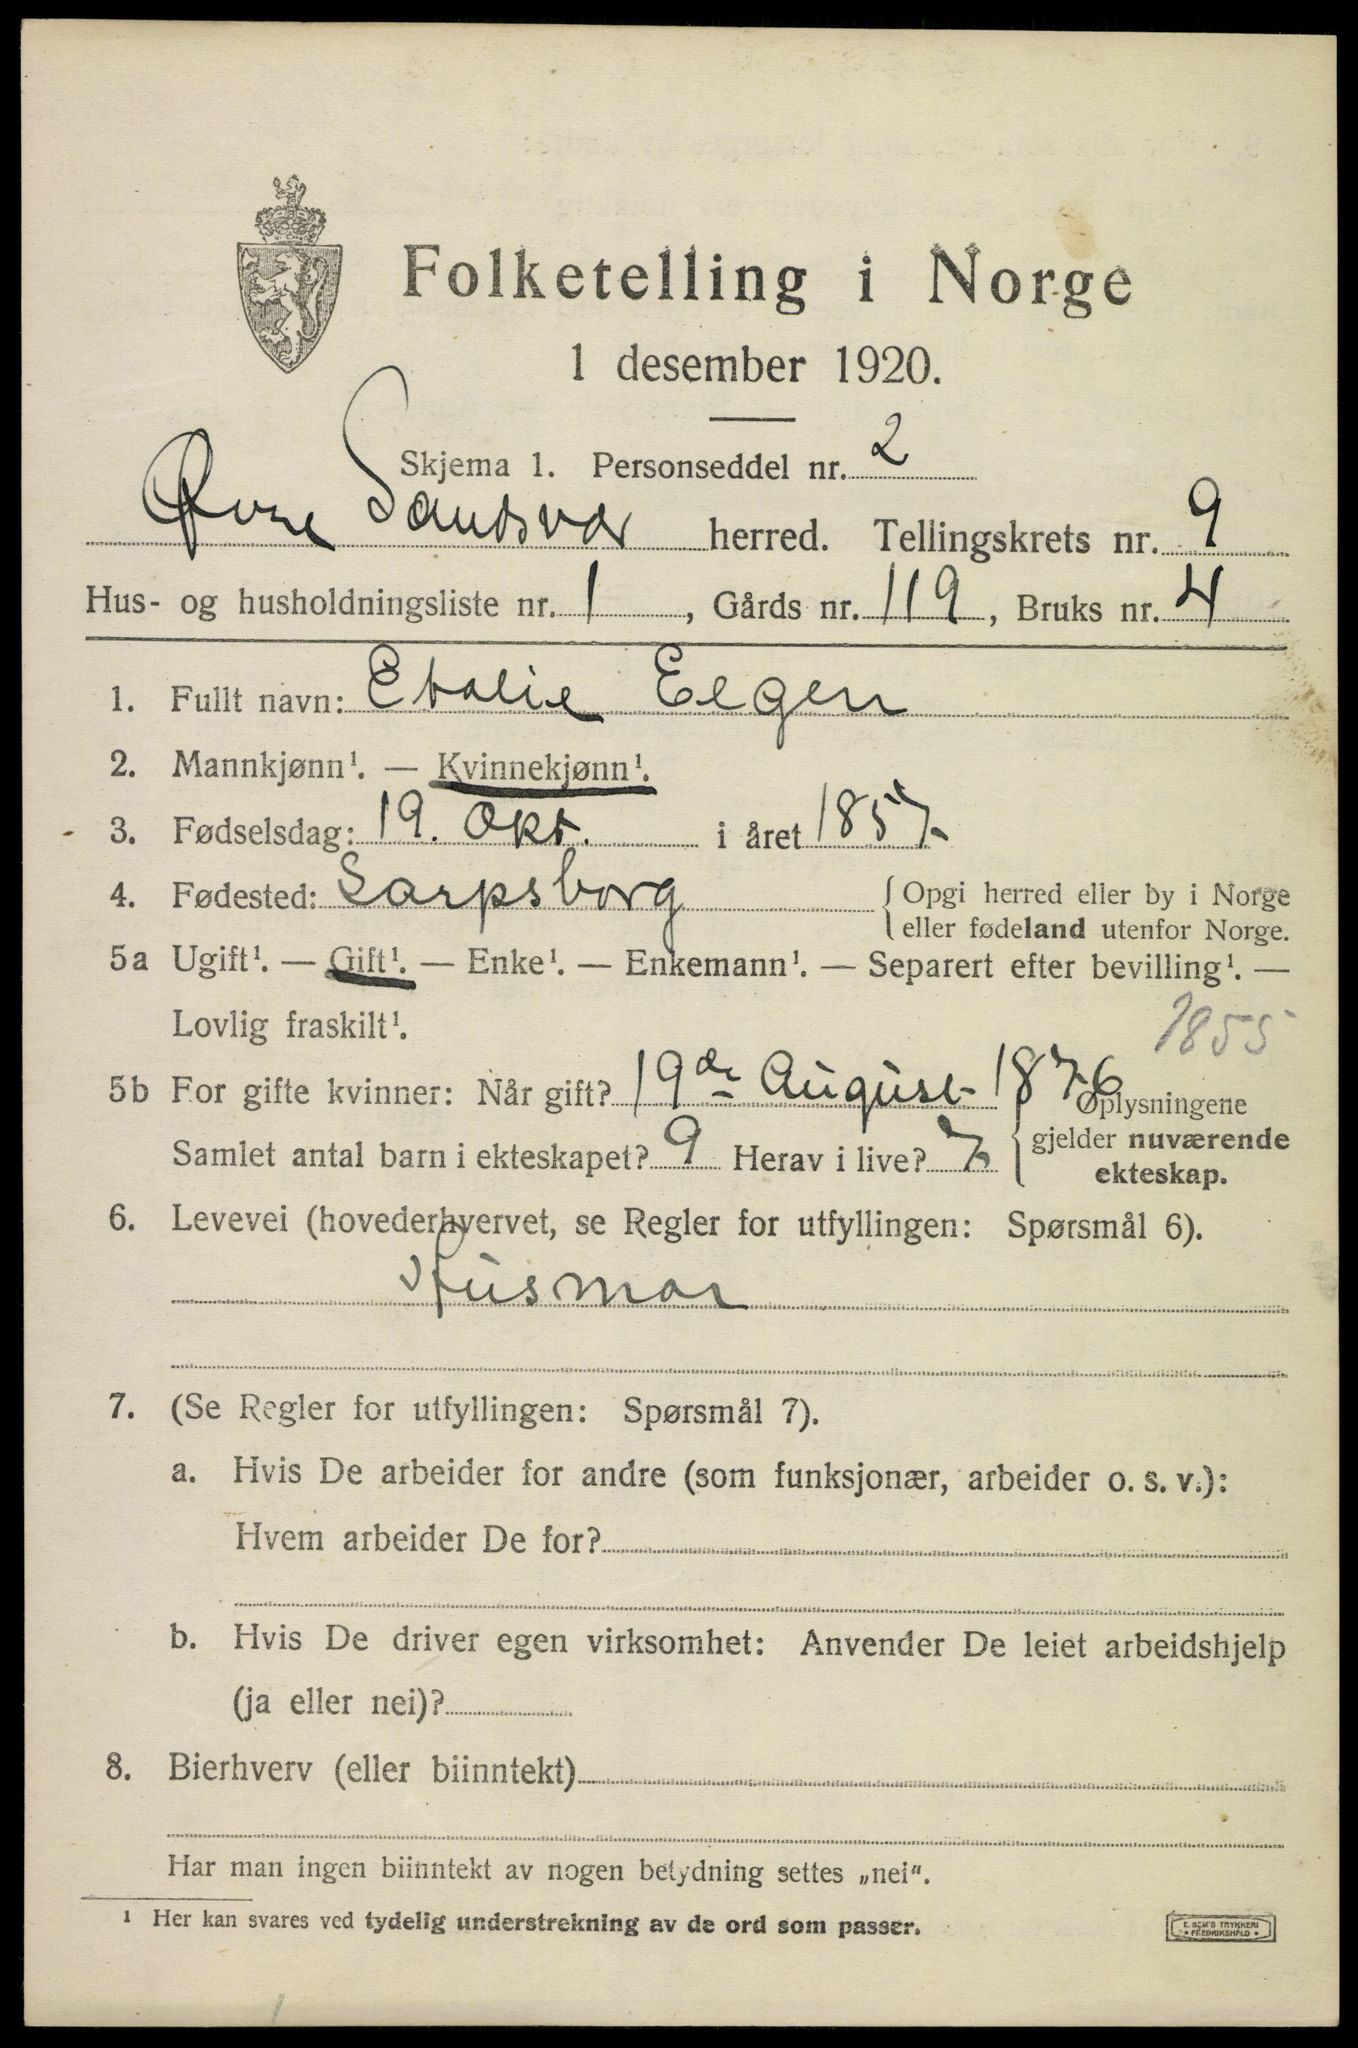 Folketelling i Norge
1 desember 1920.
Skjema 1. Personseddel nr. 2
Øvre Sandsvær herred. Tellingskrets nr. 9
Hus- og husholdningsliste nr. 1, Gårds nr. 119, Bruks nr. 4
1. Fullt navn: Etalie Elgen
2. Mannkjønn¹. — Kvinnekjønn¹.
3. Fødselsdag: 19. Okt. i året 1857.
4. Fødested: Sarpsborg {Opgi herred eller by i Norge
eller fødeland utenfor Norge.
5a Ugift¹. — Gift¹. — Enke¹. — Enkemann¹. — Separert efter bevilling¹. —
Lovlig fraskilt¹.
1855
5b For gifte kvinner: Når gift? 19de August 1876 Oplysningene
Samlet antal barn i ekteskapet? 9 Herav i live? 7 {gjelder nuværende
ekteskap.
6. Levevei (hovederhvervet, se Regler for utfyllingen: Spørsmål 6).
Husmor
7. (Se Regler for utfyllingen: Spørsmål 7).
a. Hvis De arbeider for andre (som funksjonær, arbeider o. s. v.):
Hvem arbeider De for?
b. Hvis De driver egen virksomhet: Anvender De leiet arbeidshjelp
(ja eller nei)?
8. Bierhverv (eller biinntekt)
Har man ingen biinntekt av nogen betydning settes „nei".
¹ Her kan svares ved tydelig understrekning av de ord som passer.
E. SEM'S TRYKKERI
• FREDRIKSHALD •